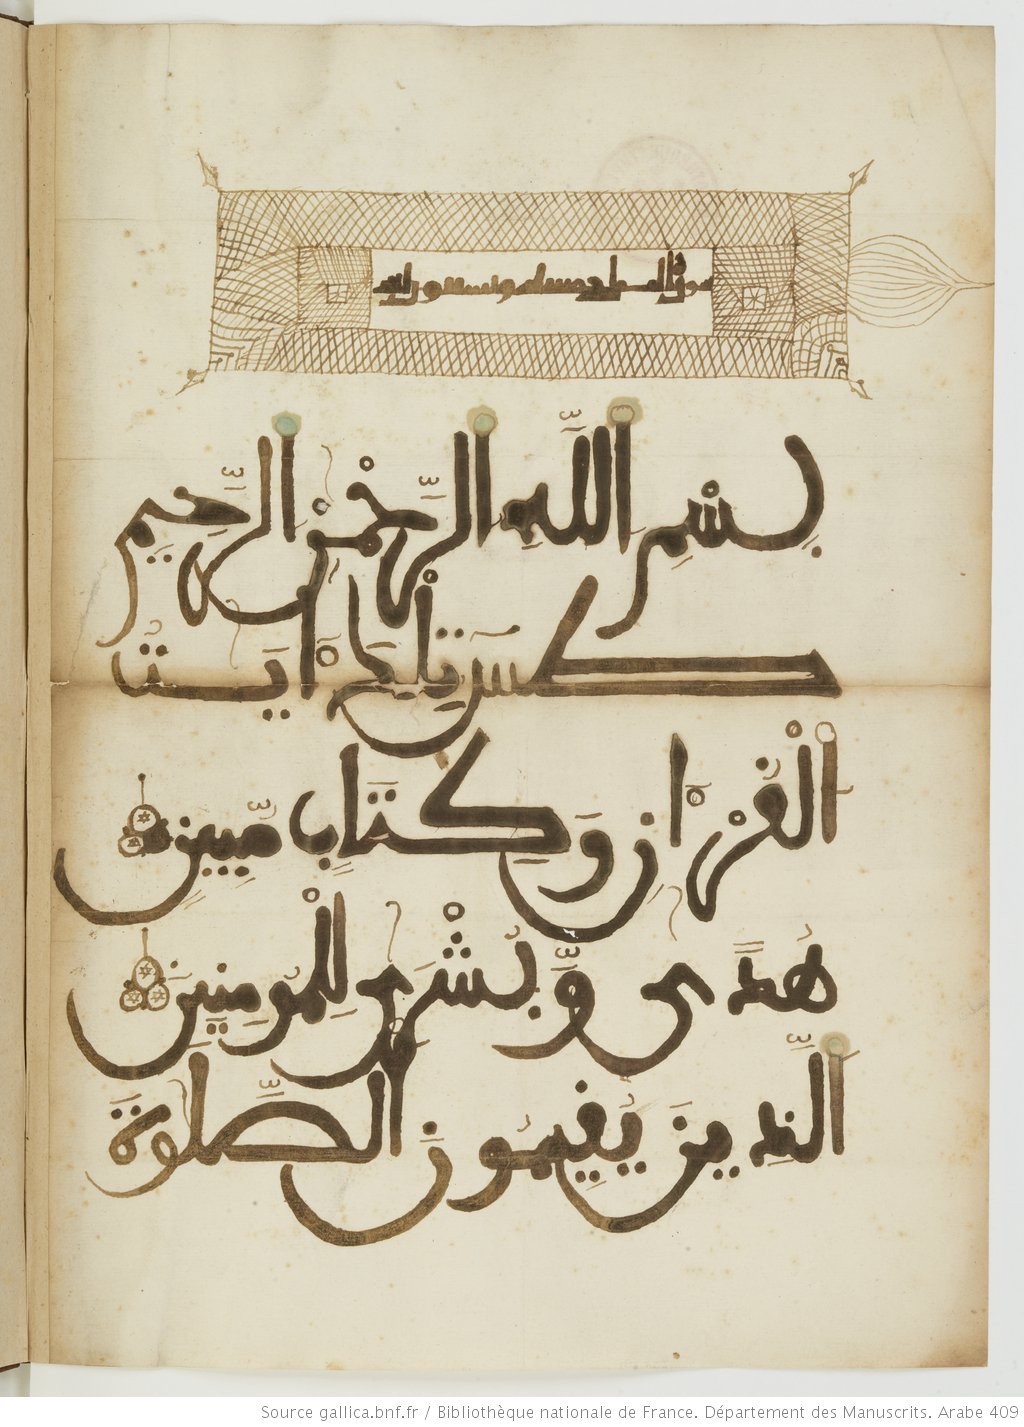 سورة النمل وتسعون
بِسْمِ اللَّهِ الرَّحْمَٰنِ الرَّحِيمِ
طسٓ تِلْكَ ءَايَٰتُ
الْقُرْءَانِ وَكِتَابٍ مُّبِينٍ
هُدًى وَّبُشْرَىٰ لِلْمُومِنِينَ
الَّذِينَ يُقِيمُونَ الصَّلَوٰةَ
Source gallica.bnf.fr / Bibliothèque nationale de France. Département des Manuscrits. Arabe 409